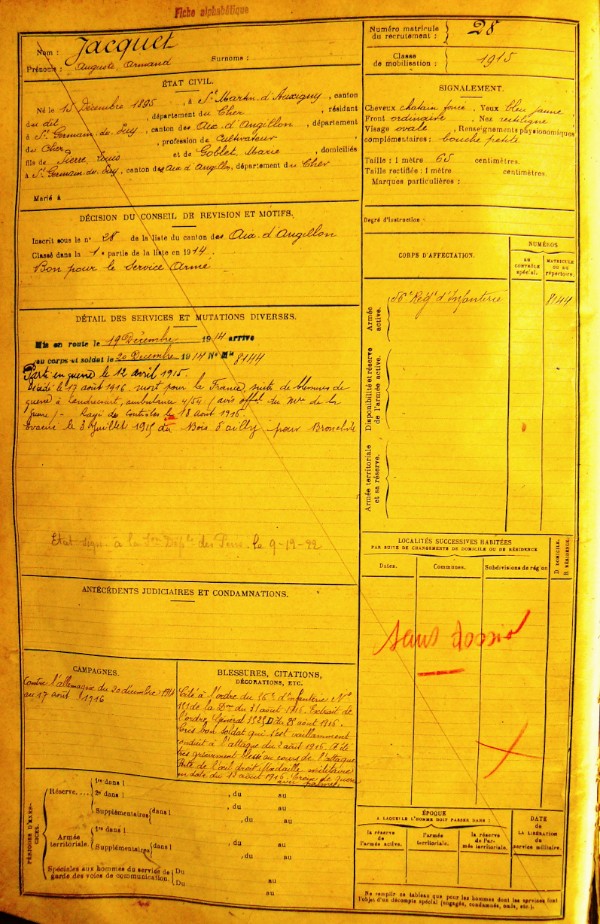 Fiche alphabétique
Nom : Jacquet
Prénoms : Auguste Armand Surnoms :
Numéro matricule
du recrutement : 28
Classe
de mobilisation : 1915
ÉTAT CIVIL.
Né le 15 Décembre 1895, à St Martin d'Auxigny, canton
du dit, département du Cher, résidant
à St Germain du Puy, canton des Aix d'Angillon, département
du Cher, profession de Cultivateur
fils de Pierre Louis et de Goblet Marie, domiciliés
à St Germain du Puy, canton des Aix d'Angillon, département du Cher
Marié à
SIGNALEMENT.
Cheveux chatain foncé. Yeux bleu jaune
Front ordinaire Nez rectiligne
Visage ovale. Renseignements physionomiques
complémentaires : bouche petite
Taille : 1 mètre 65 centimètres.
Taille rectifiée : 1 mètre centimètres.
Marques particulières :
Degré d'instruction :
DÉCISION DU CONSEIL DE REVISION ET MOTIFS.
Inscrit sous le n° 28 de la liste du canton des Aix d'Angillon
Classé dans la 1e partie de la liste en 1914
Bon pour le Service Armé
CORPS D'AFFECTATION.
NUMÉROS
AU CONTRÔLE spécial.
MATRICULE OU DU répertoire.
Armée active.
56e Régt d'Infanterie
8144
Disponibilité et réserve de l'armée active.
Armée territoriale et sa réserve.
DÉTAIL DES SERVICES ET MUTATIONS DIVERSES.
Mis en route le 19 Décembre 1914 arrivé
au corps et soldat le 20 Décembre 1914 N° Mle 8144
Parti en guerre le 12 avril 1915.
Décédé le 17 août 1916 mort pour la France, suite de blessures de
guerre à Landrecourt, ambulance 4/54 (avis offel du Mtre de la
guerre). Rayé des contrôles le 18 août 1916.
Evacué le 3 Juillet 1915 du Bois d'ailly pour Bronchite
LOCALITÉS SUCCESSIVES HABITÉES
PAR SUITE DE CHANGEMENTS DE DOMICILE OU DE RÉSIDENCE
Dates.
Communes.
Subdivisions de région
D. DOMICILE.
R. RÉSIDENCE.
sans dossier
ANTÉCÉDENTS JUDICIAIRES ET CONDAMNATIONS.
CAMPAGNES.
Contre l'allemagne du 20 décembre 1914
au 17 août 1916
BLESSURES, CITATIONS,
DÉCORATIONS, ETC.
Cité à l'ordre du 56e d'infanterie N°
du 11 août 1916. Extrait de
l'ordre Général
très bon soldat qui s'est vaillamment
conduit à l'attaque du 2 août 1916. A été
très grièvement blessé au cours de l'attaque
Perte de l'œil droit. Médaille militaire
en date du 13 août 1916. Croix de guerre
avec palme
PÉRIODES D'EXERCICES.
Réserve.
1re dans l , du au
2e dans l , du au
Supplémentaires dans l , du au
, du au
Armée territoriale.
1re dans l , du au
Supplémentaires dans l , du au
, du au
Spéciales aux hommes du service de
garde des voies de communication.
Du au
Du au
ÉPOQUE
À LAQUELLE L'HOMME DOIT PASSER DANS :
la réserve de l'armée active.
l'armée territoriale.
la réserve de l'armée territoriale.
DATE
de LA LIBÉRATION
du service militaire.
Ne remplir ce tableau que pour les hommes dont les services font
l'objet d'un décompte spécial (engagés, condamnés, omis, etc.).